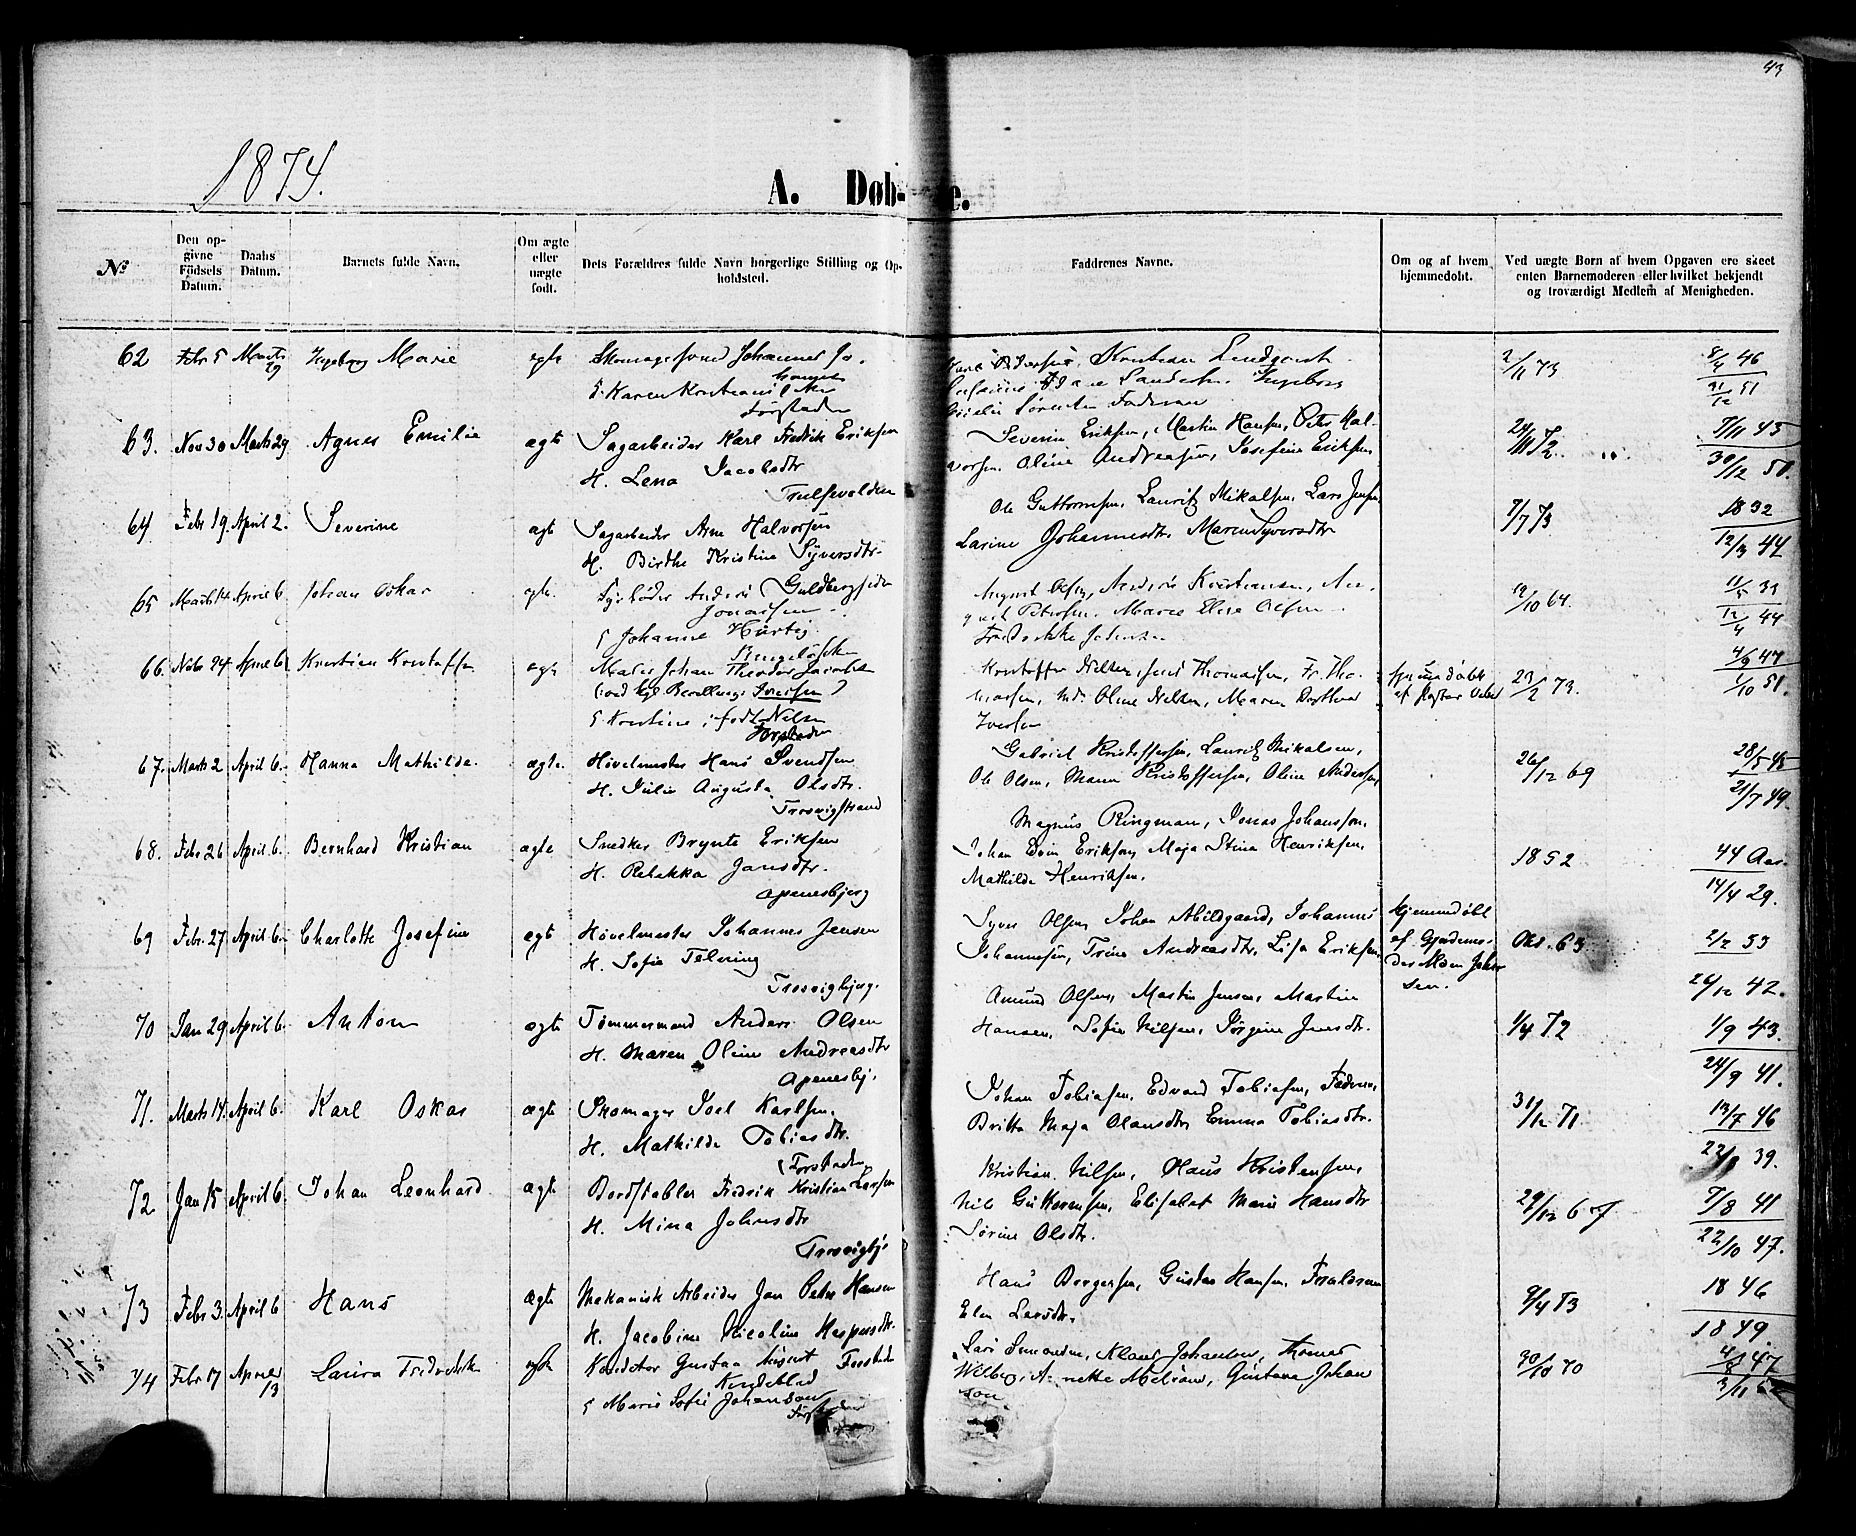 43
1874.
A. Døb-  e.
No
Den op-
givne
Födsels
Datum.
Daabs
Datum.
Barnets fulde Navn.
Om ægte
eller
uægte
født.
Dets Forældres fulde Navn borgerlige Stilling og Op-
holdsted.
Faddrenes Navne.
Om og af hvem
hjemmedøbt.
Ved uægte Born af hvem Opgaven ere skeet
enten Barnemoderen eller hvilket bekjendt
og troværdigt Medlem af Menigheden.
62 Febr 5 Marts 29 Ingeborg Marie egte Johannes
Forstaden
Ingeborg
2/11 73
8/4 46
31/12 51
63. Nov 30 Marts 29 Agnes Emilie ægte Sagarbeider Karl Fredrik Eriksen
H. Lena Jacobsdtr
Trulsevolden
Severin Eriksen, Martin Hansen, Peter Hal-
vorsen, Oline Andreasen, Josefine Eriksen
24/11 72
7/11 43
30/12 50.
64 Febr 19. April 2. Severine ægt Sagarbeider Arne Halvorsen
H. Birthe Kristine Syversdtr.
Ole Guttormsen, Lauritz Mikalsen, Lars Jensen
Larine Johannesdtr. Maren Syversdtr
7/7 73
1832
12/3 44
65 Marts 14 April 6 Johan Oskar egte. Fyrbøder Anders
Jonassen
Johanne Hurtig
August Olsen, Anders Kristiansen, Au-
gust Petersen. Marie Elise Olsen
12/10 64.
11/5 39
12/4 44
66. Novbr 24 April 6 Kristian Kristoffer ægte Maler Johan Theodor Jacobsen
(ved kgl. Bevillings Iversen)
Kristine, født Nilsen
Forstaden
Kristoffer Nilsen, Thomassen, Fr. Tho-
massen, Oline Nilsen, Maren Dorthea
Iversen
Hjemmedøbt
af
23/2 73.
4/9 47
1/10 51.
67. Marts 2 April 6. Hanna Mathilde. ægte. Høvelmester Hans Svendsen
H. Julie Augusta Olsdtr.
Trosvigstrand
Gabriel Kristoffersen, Lauritz Mikalsen,
Ole Olsen, Maren Kristoffersen, Oline Andersen
26/12 69
28/5 45
21/7 49.
68. Febr 26 April 6. Bernhard Kristian ægte Snedker Brynte Eriksen
H. Rebekka Jansdtr.
Apenesbjerg
Magnus Ringman, Jonas Johansson,
Johan Edvin Eriksen, Maja Stina Henriksen,
Mathilde Henriksen.
1852
44 Aar.
14/4 29.
69 Febr. 27 April 6. Charlotte Josefine ægt Høvelmester Johannes Jensen
H. Sofie Telning
Trosvigbjerg.
Syver Olsen, Johan Abildgaard, Johannes
Johannesen, Trine Andreasdtr. Lisa Eriksen
Hjemmedøbt
af Gjordemo-
der Johan-
sen.
Okt. 63.
2/2 53
26/12 42.
70 Jan 29 April 6. Anton ægte Tømmermand Anders Olsen
H. Maren Oline Andreasdtr
Apenesbj.
Amund Olsen, Martin Jensen, Martin
Hansen, Sofie Nilsen, Jørgine Jensdtr.
1/4 72
1/9 43.
24/9 41.
71. Marts 14. April 6. Karl Oskar ægte Skomager Joel Karlsen.
H. Mathilde Tobiasdtr.
Forstaden
Johan Tobiasen, Edvard Tobiasen, Faderen,
Britta Maja Olausdtr, Emma Tobiasdtr.
31/12 71
13/7 46
22/9 39.
72 Jan 15 April 6. Johan Leonhard ægt Bordstabler Fredrik Kristian Larsen
H. Mina Johnsdtr
Trosvigbj.
Kristian Nilsen, Hans Kristensen,
Nils Guttormsen, Elisabet Marie Hansdtr
Sørine Olsdtr.
29/12 67
7/8 41
22/10 47.
73 Febr 3. April 6 Hans ægte Mekanisk Arbeider Jan Peter Hansen
H. Jacobine Nicoline Jespersdtr.
Forstaden
Hans Borgersen, Gustav Hansen, Forældrene
Elen Larsdtr.
9/4 73
1846
1849.
74 Febr 17 April 13 Laura Fredrikke egte Konduktør Gustaf August
Kindblad
Marie Sofie Johansdon
Forstaden
Lars Klaus Johansen, Thomas
Gustava Johan
son
30/10 70
4/8 47